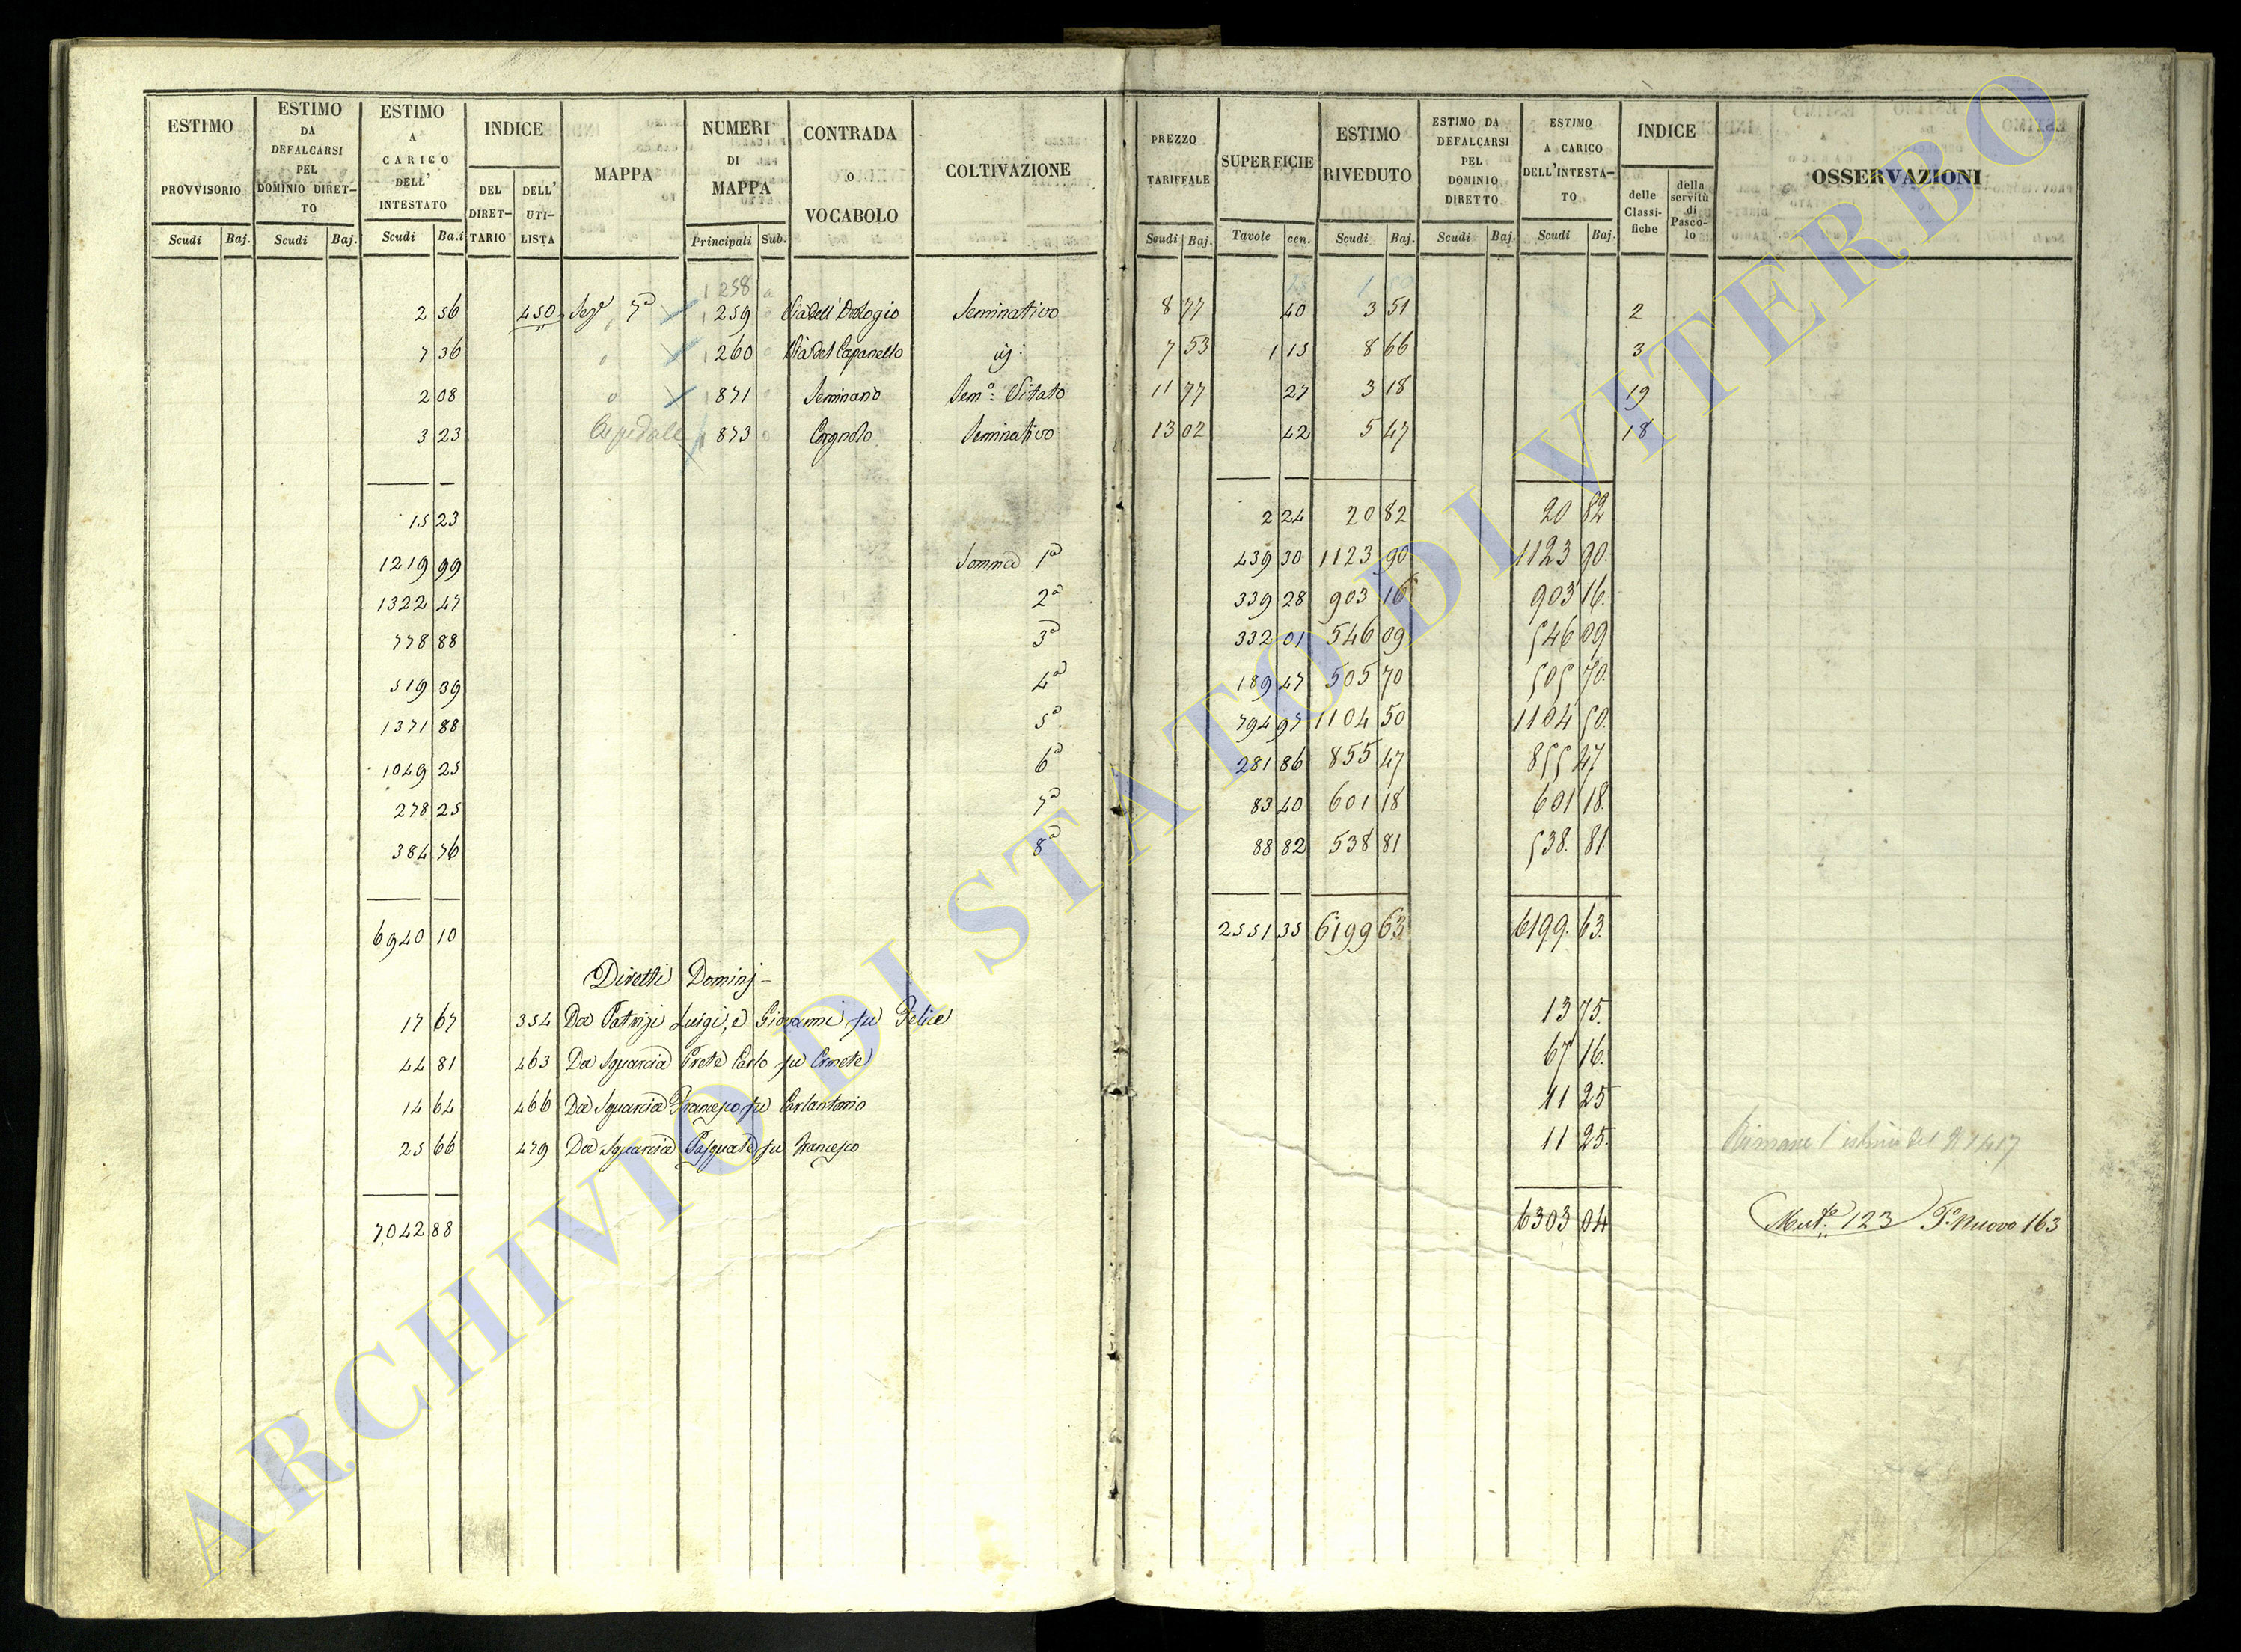 ESTIMO PROVVISORIO
Scudi Baj.
ESTIMO DA DEFALCARSI PEL DOMINIO DIRET-TO
Scudi Baj.
ESTIMO A CARICO DELL' INTESTATO
Scudi Ba.i
INDICE
DEL DIRET-TARIO
DELL' UTI-LISTA
MAPPA
NUMERI DI MAPPA
Principali Sub.
CONTRADA o VOCABOLO
COLTIVAZIONE
PREZZO TARIFFALE
Scudi Baj.
SUPERFICIE
Tavole cen.
ESTIMO RIVEDUTO
Scudi Baj.
ESTIMO DA DEFALCARSI PEL DOMINIO DIRETTO
Scudi Baj.
ESTIMO A CARICO DELL'INTESTA-TO
Scudi Baj.
INDICE
delle Classi-fiche
della servitù di Pasco-lo
OSSERVAZIONI
1 258
2 56 450 Segº 7ª 1 259 Via dell'Orologio Seminativo 8 77 40 3 51 2
7 36 1 260 Via del Capanello 7 53 1 15 8 66 3
2 08 871 Seminario Semº: Vitato 11 77 27 3 18 19
3 23 873 Corgnolo Seminativo 13 02 42 5 47 18
15 23 2 24 20 82 20 82
1219 99 Somma 1ª 439 30 1123 90 1123 90.
1322 47 2ª 339 28 903 16 903 16.
778 88 3ª 332 01 546 09 546 09
519 39 4ª 189 47 505 70 505 70.
1371 88 5ª 794 97 1104 50 1104 50.
1049 25 6ª 281 86 855 47 855 47
278 25 7ª 83 40 601 18 601 18.
384 76 8ª 88 82 538 81 538. 81.
6940 10 2551 35 6199 63 6199. 63.
Diretti Dominj
17 67 354 Da Patrizi Luigi, e Giovanni fu Felice 13 75.
44 81 463 Da Sguarcia Prete Carlo fu Ermete 67 16.
14 64 466 Da Sguarcia Francesco fu Carlantonio 11 25
25 66 479 Da Sguarcia Pasquale fu Francesco 11 25.
7042 88 6303 04 Mutª. 123 Pº. Nuovo 163
ARCHIVIO DI STATO DI VITERBO